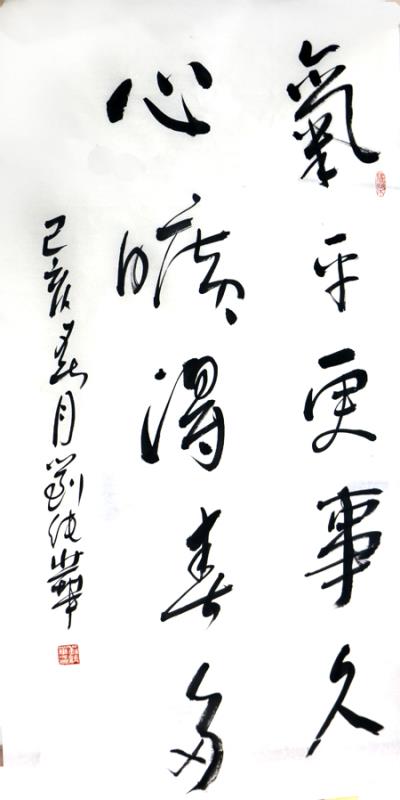 氣平更事久
心曠得春多
己亥春月劉純華